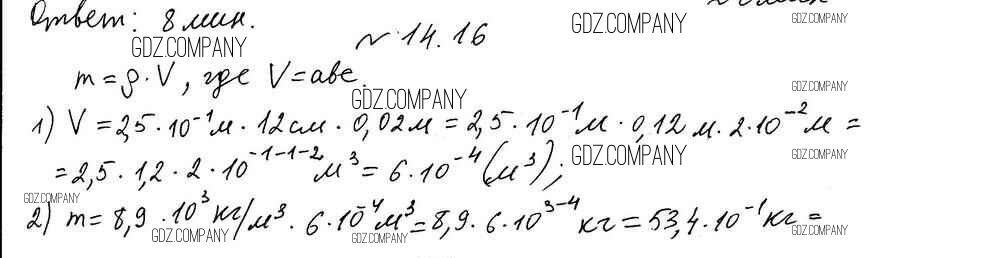 Ответ: 8 мин.
GDZ.COMPANY GDZ.COMPANY GDZ.COMPANY
№ 14.16
m = ρ · V, где V = abc.
GDZ.COMPANY GDZ.COMPANY
1) V = 2,5 · 10⁻¹м · 12см · 0,02м = 2,5 · 10⁻¹м · 0,12м · 2 · 10⁻²м =
= 2,5 · 1,2 · 2 · 10⁻¹⁻¹⁻² м³ = 6 · 10⁻⁴ (м³);
GDZ.COMPANY GDZ.COMPANY
GDZ.COMPANY
2) m = 8,9 · 10³ кг/м³ · 6 · 10⁻⁴ м³ = 8,9 · 6 · 10³⁻⁴ кг = 53,4 · 10⁻¹ кг =
GDZ.COMPANY GDZ.COMPANY GDZ.COMPANY